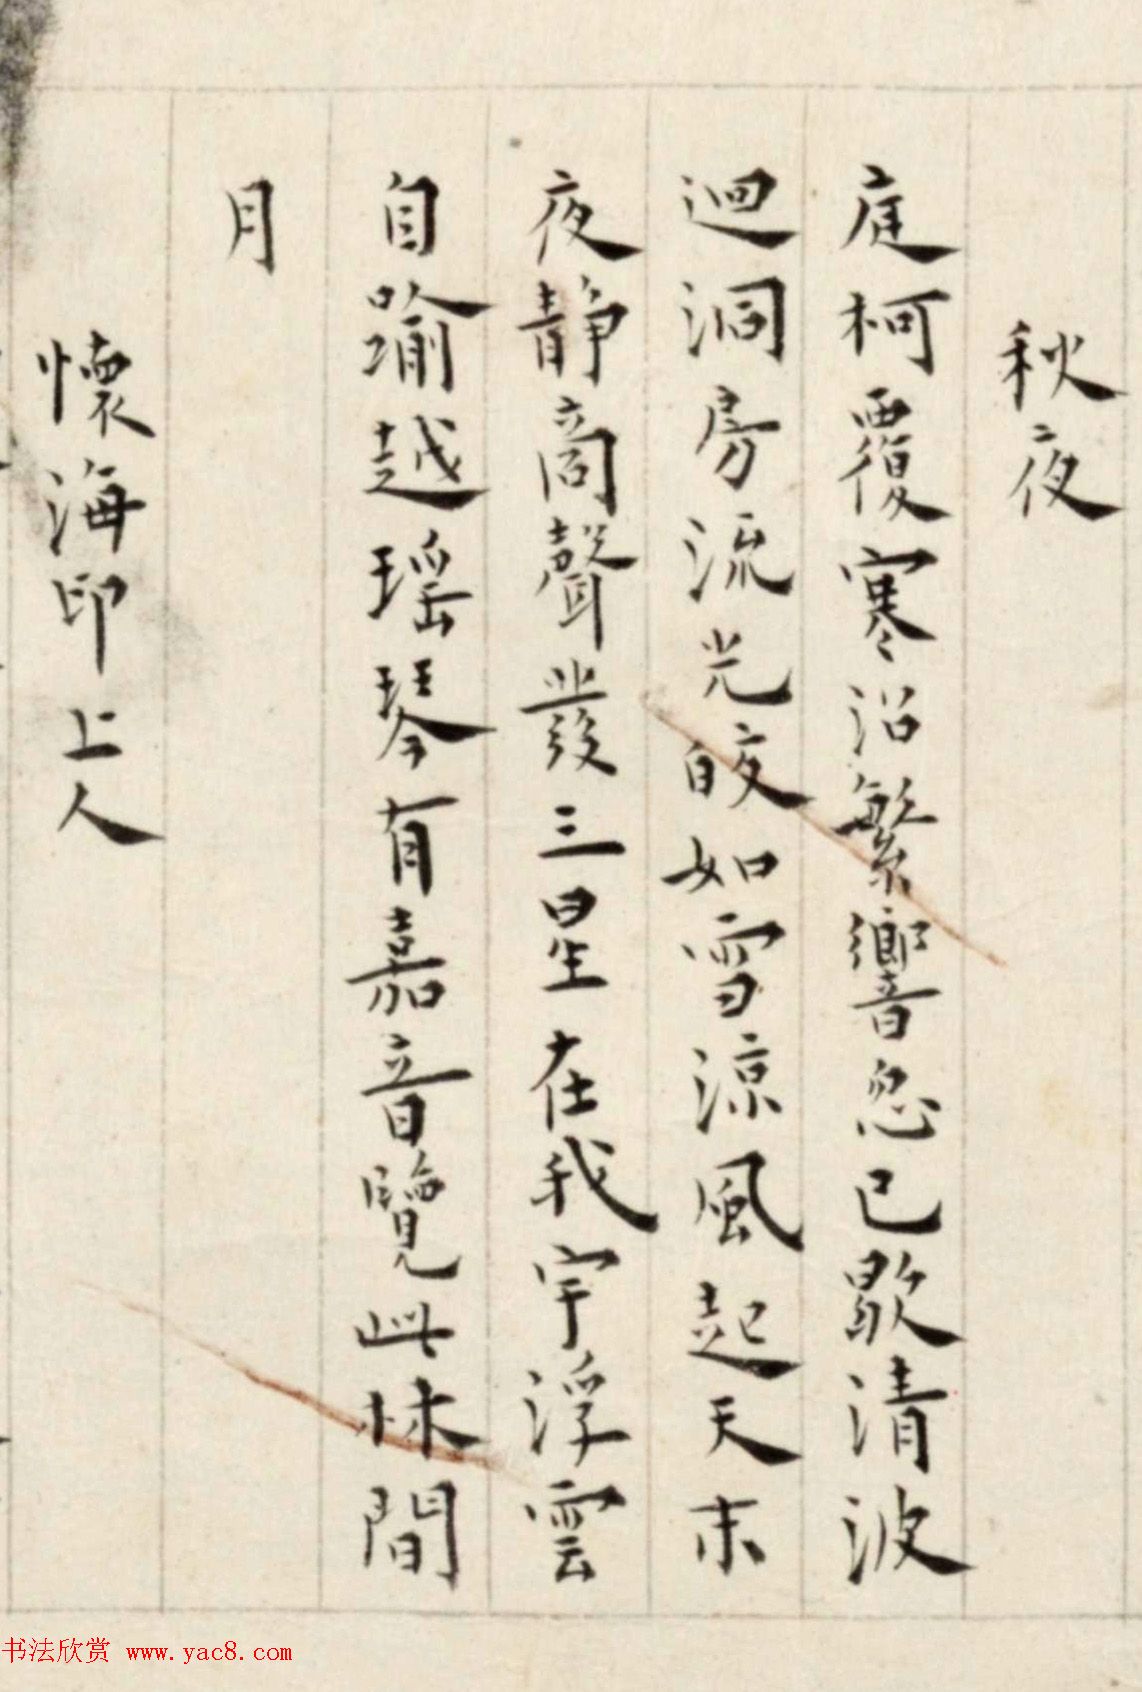 秋夜
庭柯覆寒沼繁響忽已歇清波
迴洞房流光皎如雪涼風起天末
夜靜商聲發三星在我宇浮雲
自踰越瑤琴有嘉音覽此林間
月
懷海印上人
书法欣赏 www.yac8.com